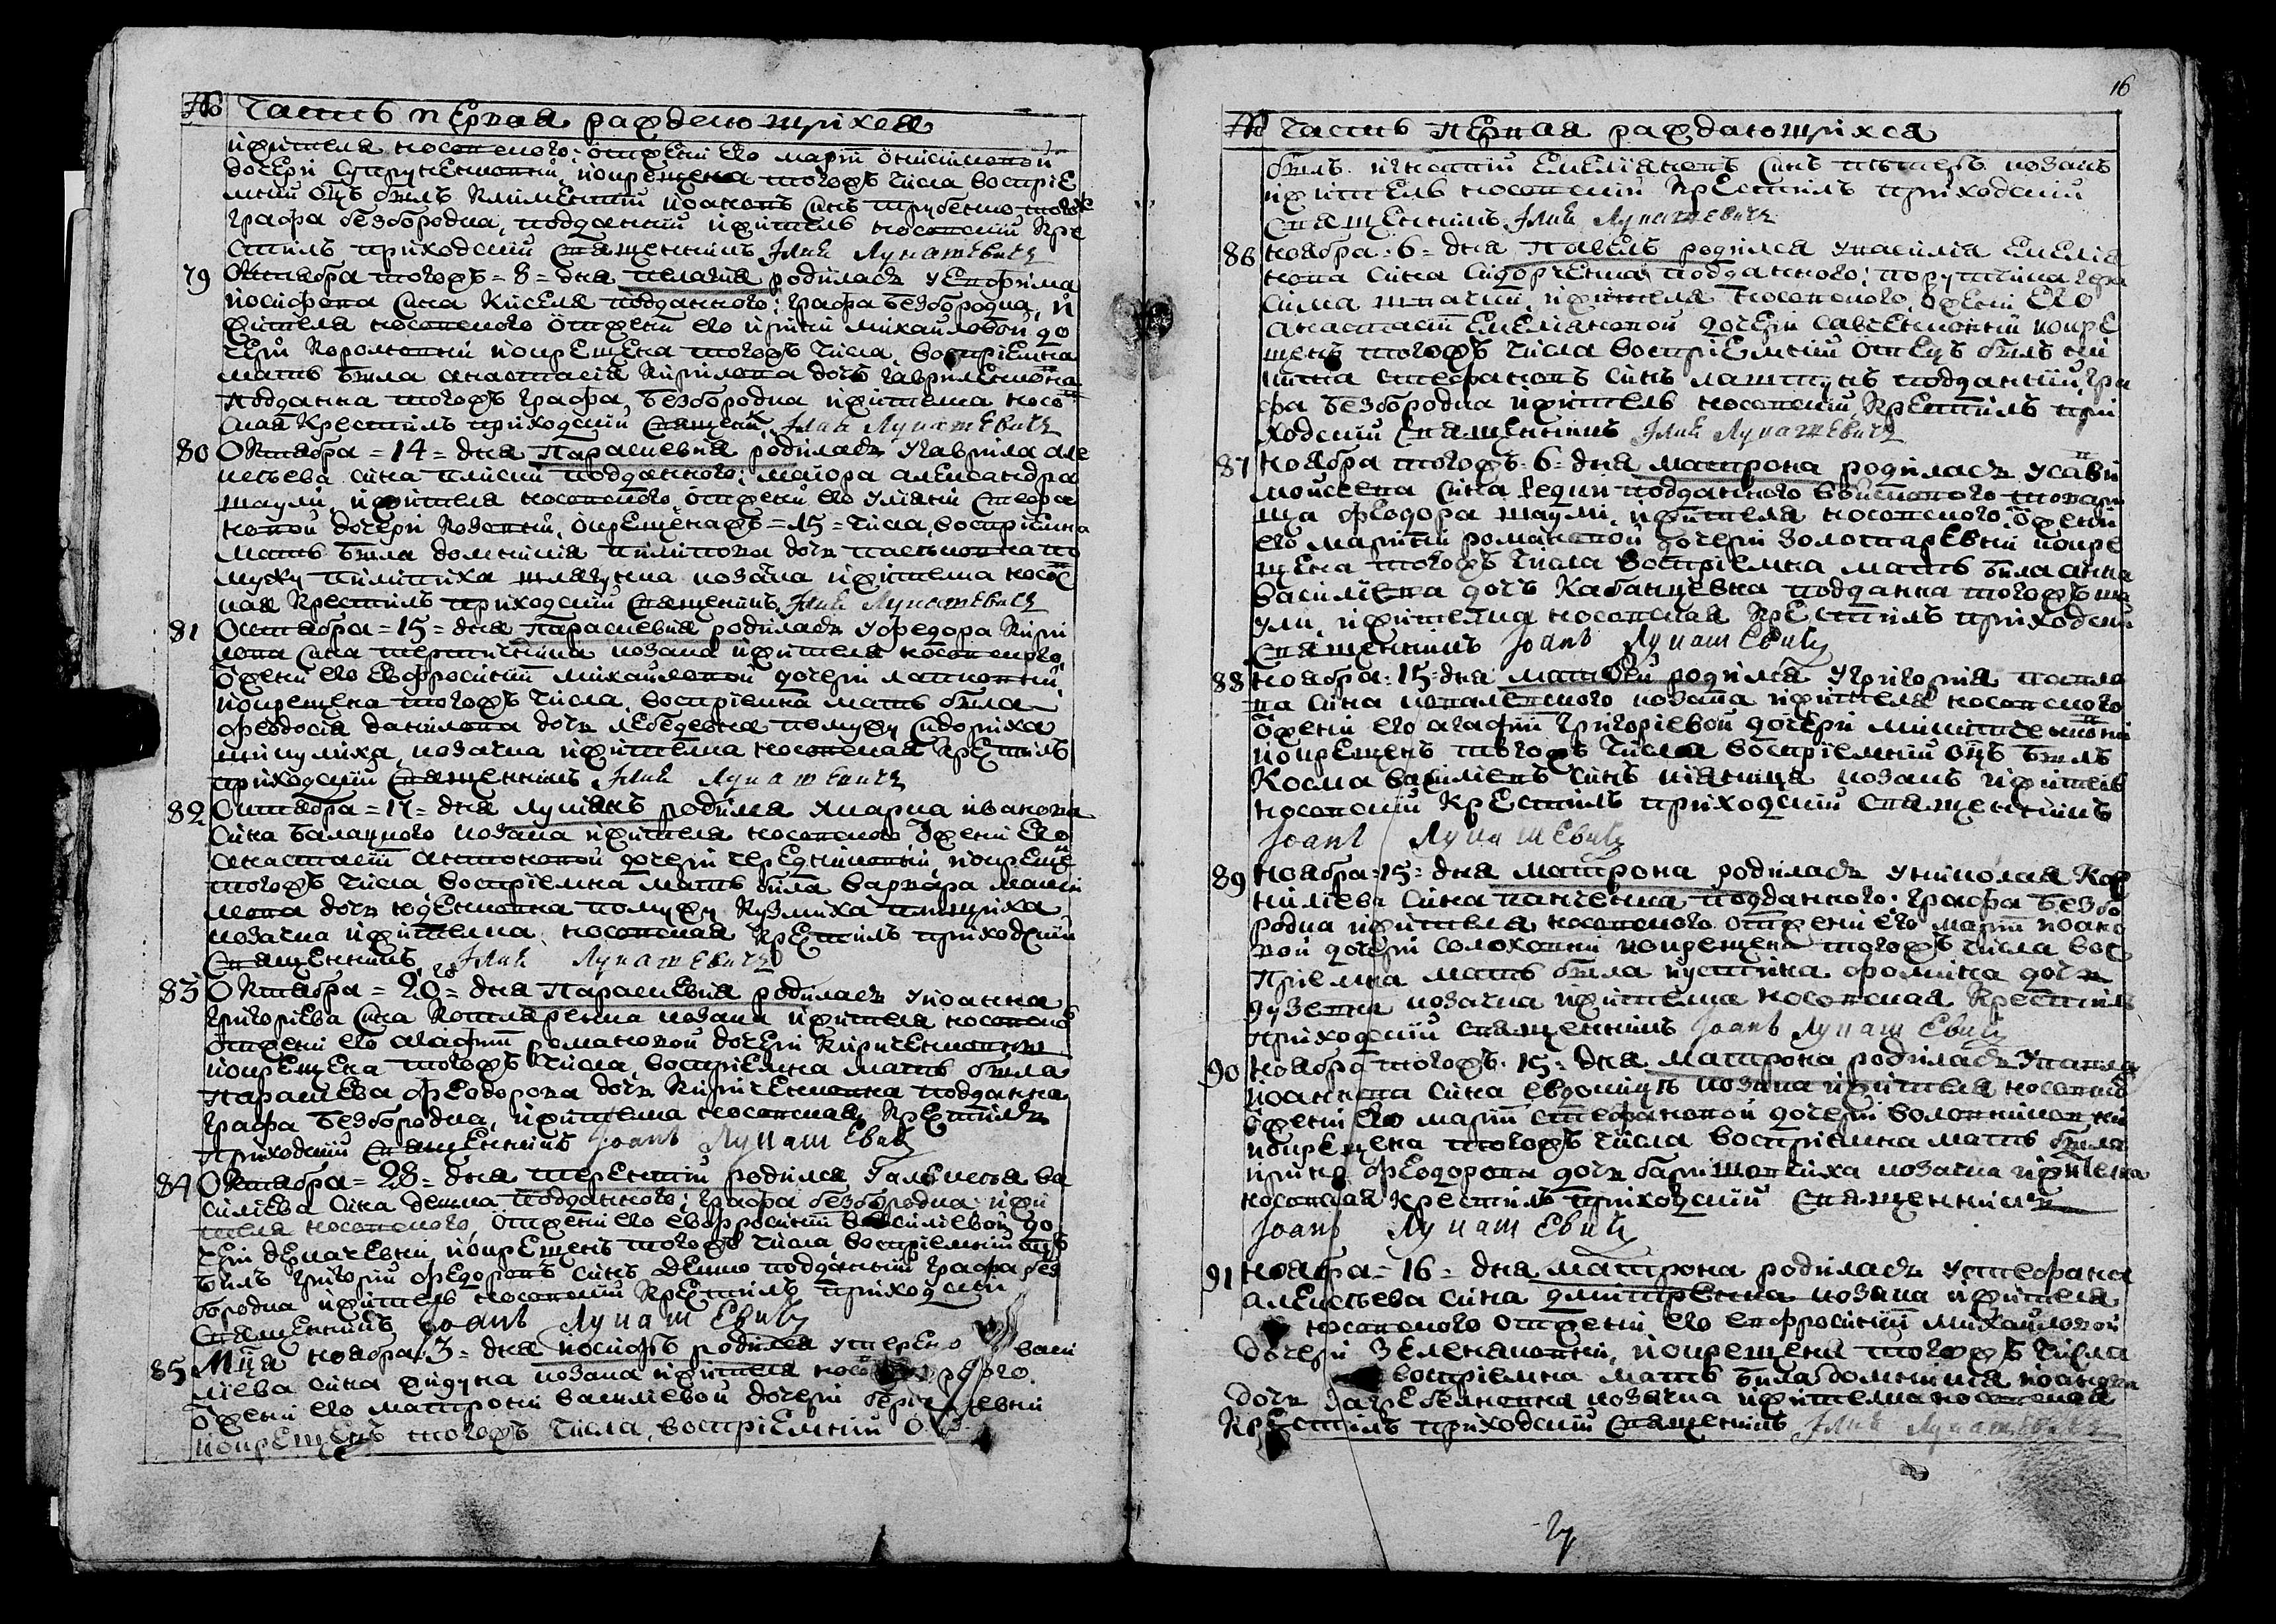 № Часть первая раждающихся
жителя носовского: отжени его марiи онисимовой
дочери супруненковни, иокрещена тогожъ числа воспрiе
мний оцъ былъ климентiй иоановъ сынъ трубенко тогожъ
графа безбородка, подданний житель носовскiй кре
стилъ приходскiй священникъ Iоанъ Лукашевичъ
79 Октября тогожъ = 8 = дня пелагия родилась у евфима
иосифова сына киселя подданного: графа безбородка, и
жителя носовского отжени его ирини михайловой до
чери коромовни иокрещена тогожъ числа, воспрiемна
мать была анастасiя кирилова дочь гавриленкова
подданна тогожъ графа безбородка жителка носов
ская крестилъ приходскiй священникъ Iоанъ Лукашевичъ
80 Октября = 14 = дня параскевия родилась у гаврила але
ксѣева сына плиски подданного: маиора александра
шаули, жителя носовского, отжени его улияни стефа
новой дочери козовни, окрещенажъ = 15 = числа, воспрiимна
мать была домникiя пилипова дочь пасѣковна по
мужу пилипиха шлягунка козачка жителка носов
ская крестилъ приходскiй священникъ Iоанъ Лукашевичъ
81 Октября = 15 = дня параскевия родилась у федора кири
лова сына терпичника козака жителя носовского,
отжени его евфросинiи михайловой дочери лаповни,
иокрещена тогожъ числа, воспрiемна мать была
феодосiя данилова дочь лебедевна помужу сидориха
микулиха, козачка жителка носовская крестилъ
приходскiй священникъ Iоанъ Лукашевичъ
82 Октября = 17 = дня лукiянъ родился у марка иванова
сына балацкого козака жителя носовского отжени его
анастасiи антоновой дочери чередниковни, иокрещенъ
тогожъ числа, воспрiемна мать была варвара мани
лова дочь поденковна помужу кузмиха прищиха
козачка жителка, носовская крестилъ приходскiй
священникъ Iоанъ Лукашевичъ
83 Октября = 20 = дня параскевия родилась у иоанна
григорiева сына котляренка козака жителя носовского
отжени его агафiи романовой дочери кириченковни
иокрещена тогожъ числа, воспрiемна мать была
параскева феодорова дочь кириченковна подданна
графа безбородка, жителка носовская, крестилъ
приходскiй священникъ Iоанъ Лукашевичъ
84 Октября = 28 = дня терентiй родился у алексѣя ва
силiева сына демка подданного: графа безбородка: жи
теля носовского, отжени его евфросинiи василiевой до
чери деркачевни, иокрещенъ тогожъ числа воспрiемний оцъ
былъ григорiй федоровъ сынъ демко подданний графа без
бородка житель носовскiй крестилъ приходскiй
священникъ Iоанъ Лукашевичъ
85 Мця ноября 3 = дня иосифъ родился у терен васи
лiева сына жидука козака жителя носо
отжени его матрони василiевой дочери
иокрещенъ тогожъ числа, воспрiемний
16
№ Часть первая раждающихся
былъ игнатiй емелiяновъ сынъ козакъ
житель носовскiй крестилъ приходскiй
священникъ Iоанъ Лукашевичъ
86 ноября = 6 = дня павелъ родился у василiя емелiя
нова сына сидорченка подданного: поручника гера
сима шкляра, жителя носовского, отжени его
анастасiи емелiяновой дочери савченковни иокре
щенъ тогожъ числа воспрiемний отецъ былъ ни
кита стефановъ сынъ лашпунъ подданний гра
фа безбородка житель носовскiй, крестилъ при
ходскiй священникъ Iоанъ Лукашевичъ
87 ноября тогожъ = 6 = дня матрона родилась у сави
моисеева сына редки подданного войскового товари
ща феодора шаули, жителя носовского, отжени
его марини романовой дочери золотаревни иокре
щена тогожъ числа воспрiемна мать была анна
василiева дочь кабанцевна подданна тогожъ ша
ули, жителка носовская крестилъ приходскiй
священникъ Iоанъ Лукашевичъ
88 ноября = 15 = дня матвѣй родился у григорiя павло
ва сына коваленкого козака жителя носовского
отжени его агафiи григорiевой дочери микитенковни
иокрещенъ тогожъ числа воспрiемний оцъ былъ
косма василiевъ сынъ пiяница козакъ житель
носовскiй крестилъ приходскiй священникъ
Iоанъ Лукашевичъ
89 ноября = 15 = дня матрона родилась у николая кор
нилiева сына панченка подданного: графа безбо
родка жителя носовского отжени его марiи иоано
вой дочери солоховни иокрещена тогожъ числа вос
приемна мать была иустина фомина дочь
дузевна козачка жителка носовская крестилъ
приходскiй священникъ Iоанъ Лукашевичъ
90 ноября тогожъ = 15 = дня матрона родилась у павла
иоанова сына евдокимца козака жителя носовского
отжени его марiи стефановой дочери воловниковни
иокрещена тогожъ числа воспрiемна мать была
ирина феодорова дочь баришовниха козачка жителка
носовская крестилъ приходскiй священникъ
Iоанъ Лукашевичъ
91 ноября = 16 = дня матрона родилась у стефана
алексѣева сына дмитренка козака жителя
носовского отжени его евфросинiи михайловой
дочери зеленяковни, иокрещена тогожъ числа
воспрiемна мать была домникiя иоанова
дочь загребелновна козачка жителка носовская
крестилъ приходскiй священникъ Iоанъ Лукашевичъ